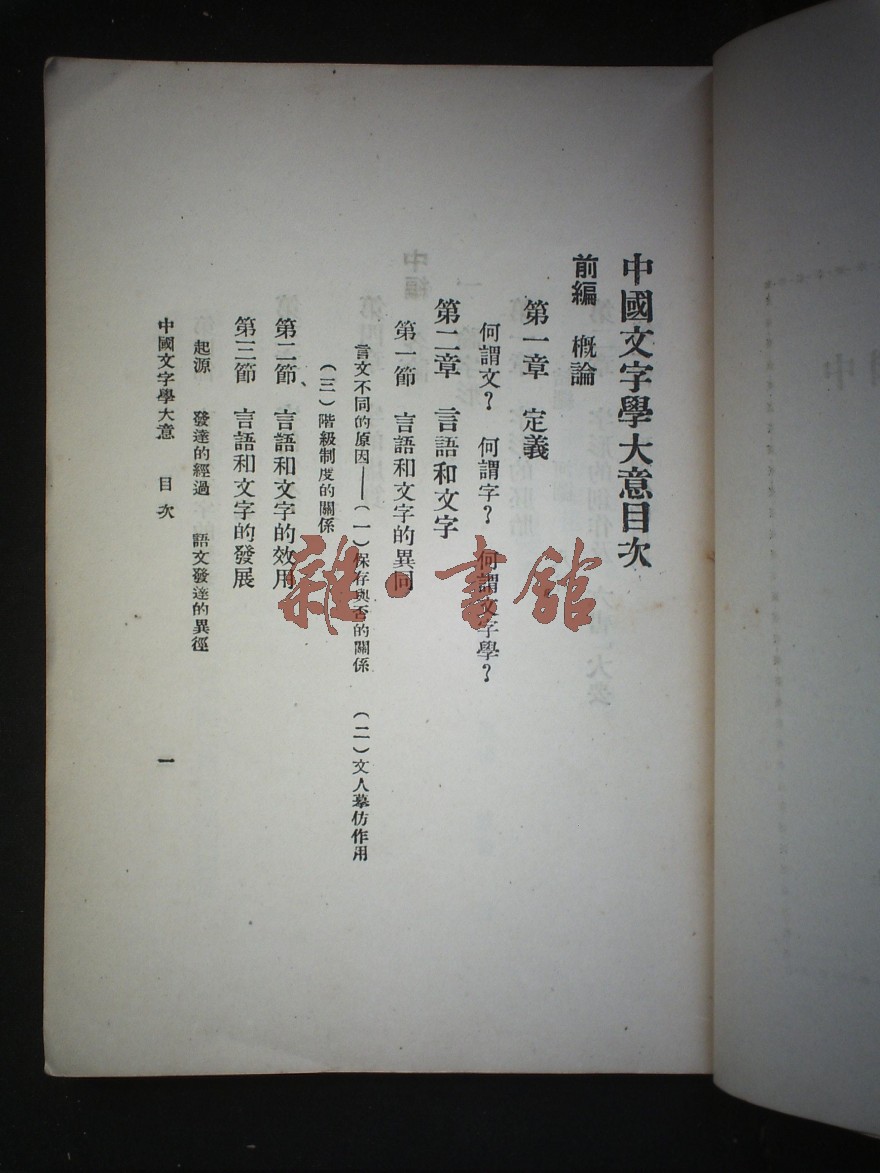 中國文字學大意目次
前編　概論
第一章　定義
何謂文？　何謂字？　何謂文字學？
第二章　言語和文字
第一節　言語和文字的異同
言文不同的原因——（一）保存與否的關係　（二）文人摹仿作用
（三）階級制度的關係
第二節、言語和文字的效用
第三節　言語和文字的發展
起源　發達的經過　語文發達的異徑
中國文字學大意　目次　一
雜·書館